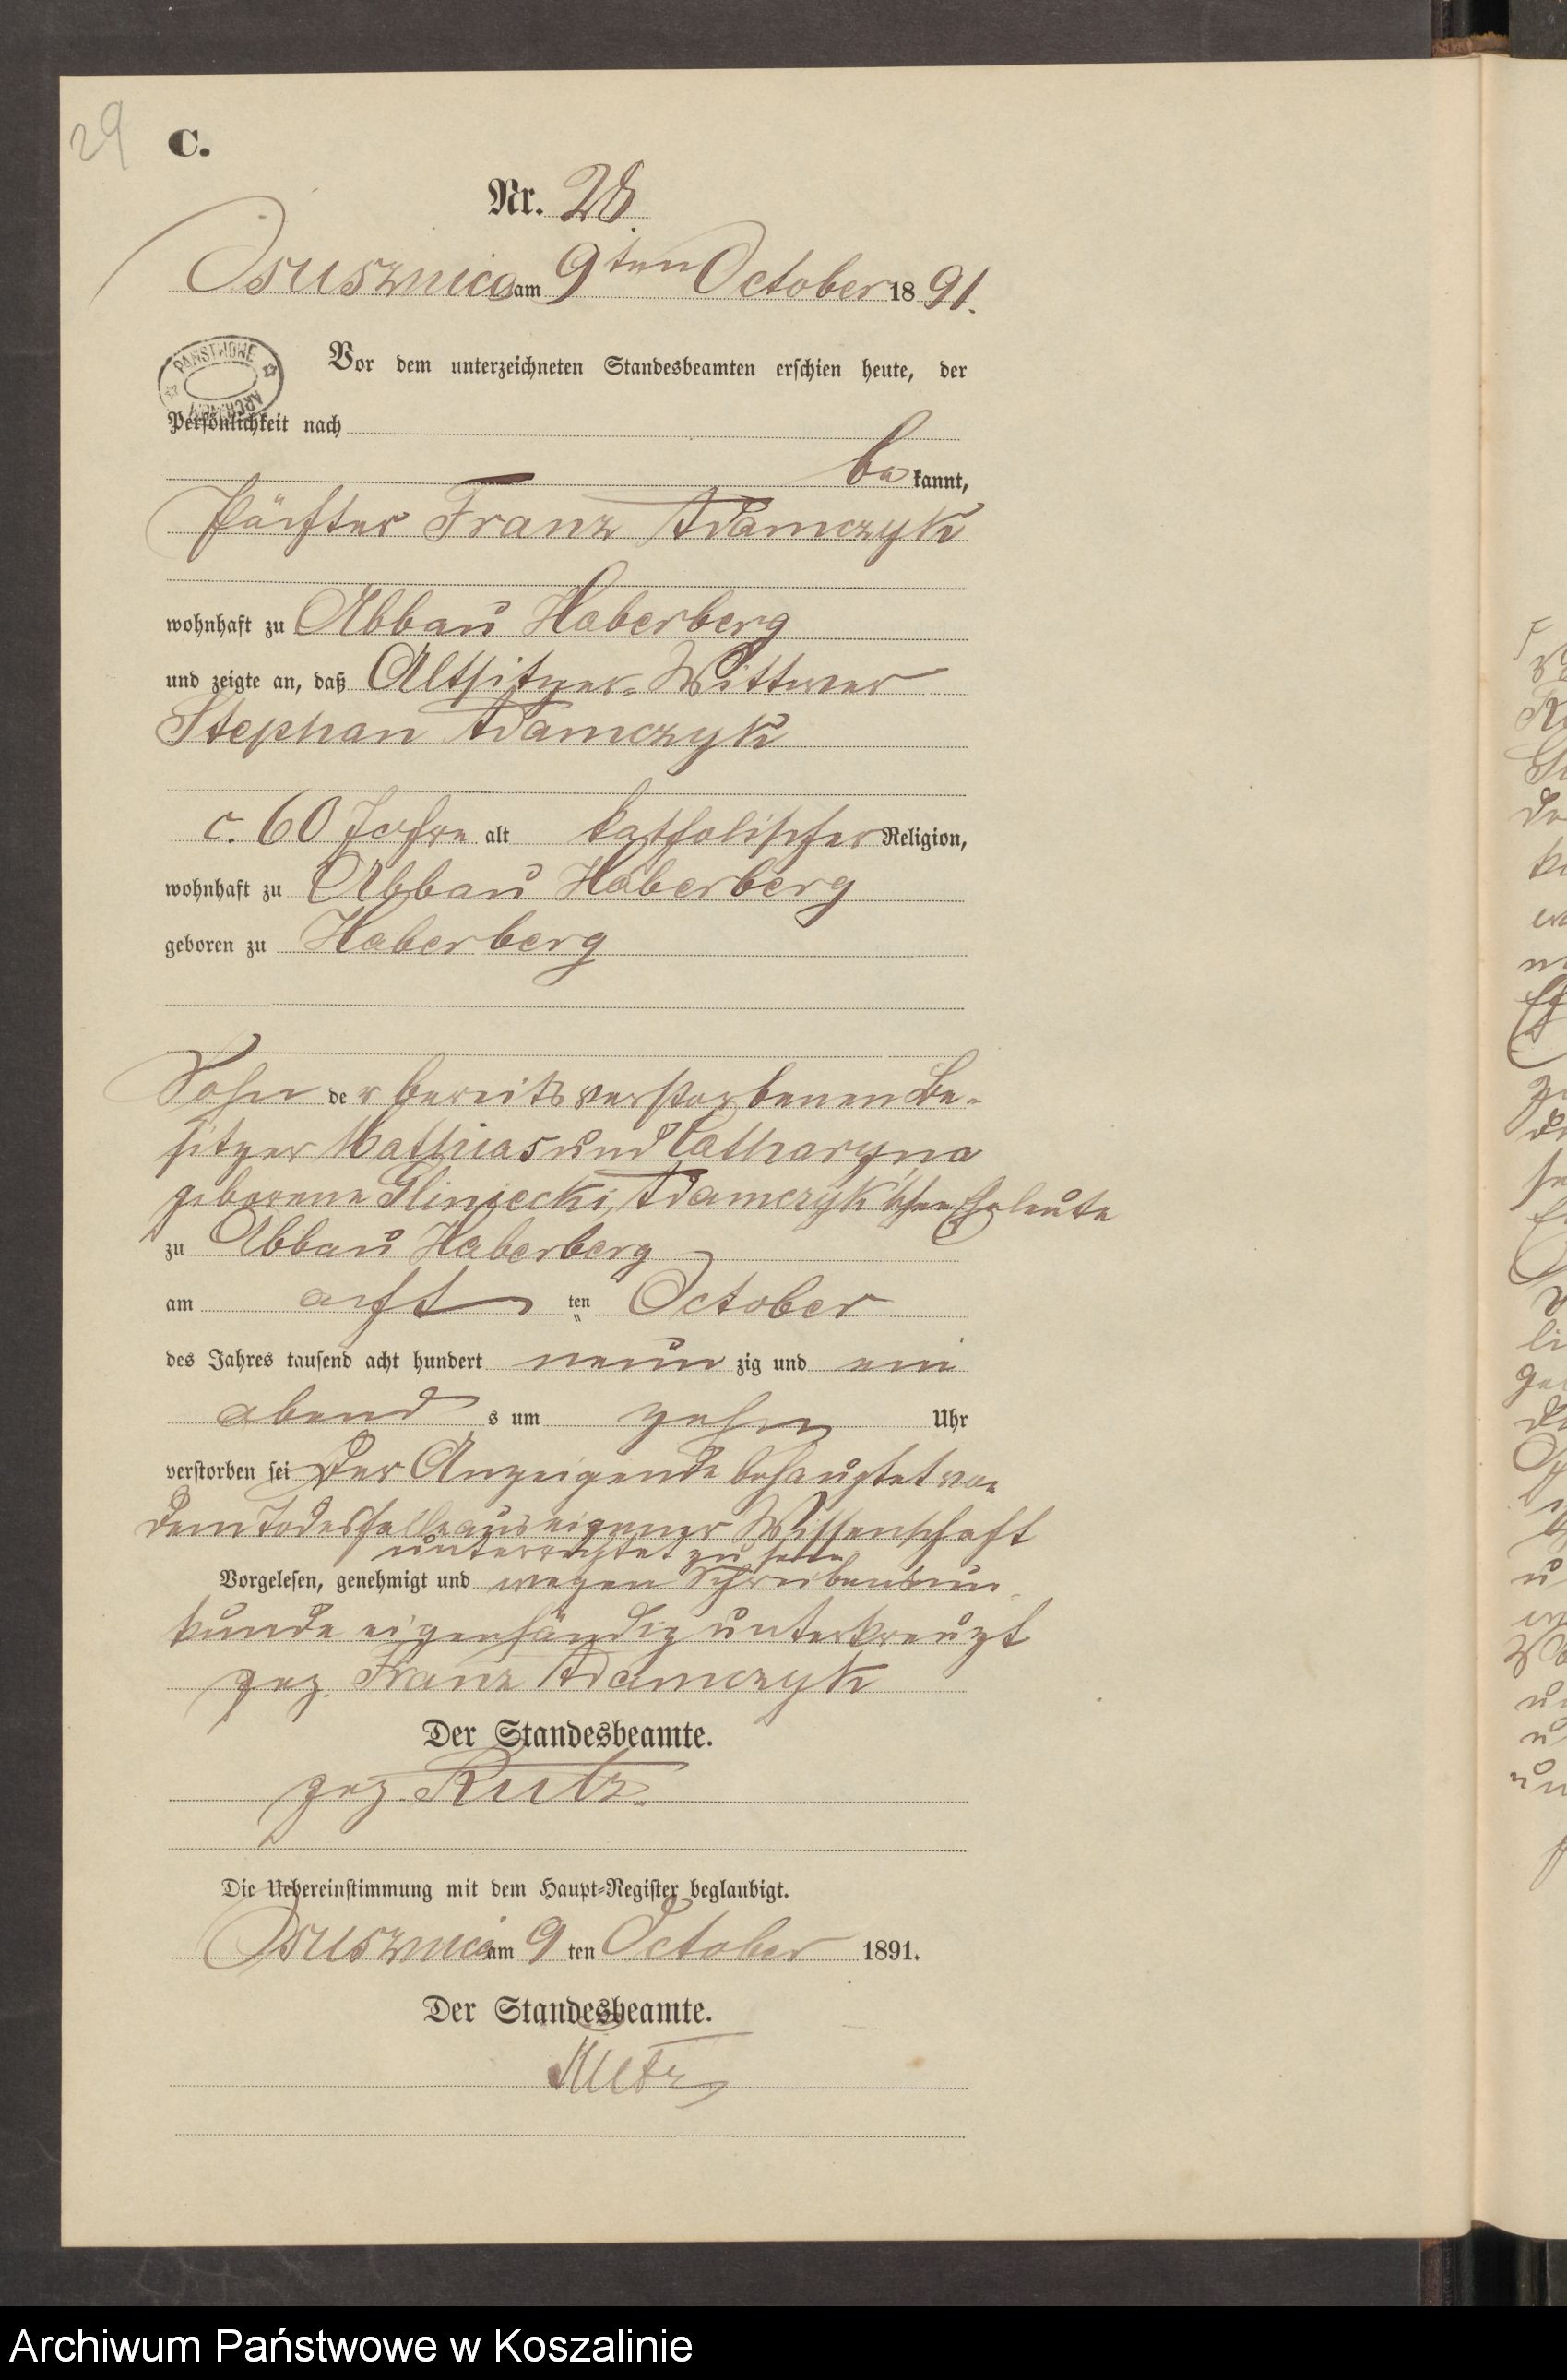 29
C.
Nr. 28.
Osusznica am 9ten October 1891.
PAŃSTWOWE ARCHIWUM
Vor dem unterzeichneten Standesbeamten erschien heute, der
Persönlichkeit nach
be kannt,
Pächter Franz Adamczyk
wohnhaft zu Abbau Haberberg
und zeigte an, daß Altsitzer-Wittwer
Stephan Adamczyk
c. 60 Jahre alt katholischer Religion,
wohnhaft zu Abbau Haberberg
geboren zu Haberberg
Sohn der bereits verstorbenen Be-
sitzer Mathias und Catharyna
geborene Gliniecki, Adamczyk'schen Eheleute
zu Abbau Haberberg
am acht ten October
des Jahres tausend acht hundert neun zig und ein
abend s um zehn Uhr
verstorben sei Der Anzeigende behauptet von
dem Todesfalle aus eigener Wissenschaft
unterrichtet zu sein
Vorgelesen, genehmigt und wegen Schreibensun-
kunde eigenhändig unterkreuzt
gez. Franz Adamczyk
Der Standesbeamte.
gez. Kutz.
Die Uebereinstimmung mit dem Haupt-Register beglaubigt.
Osusznica am 9 ten October 1891.
Der Standesbeamte.
Kutz
Archiwum Państwowe w Koszalinie